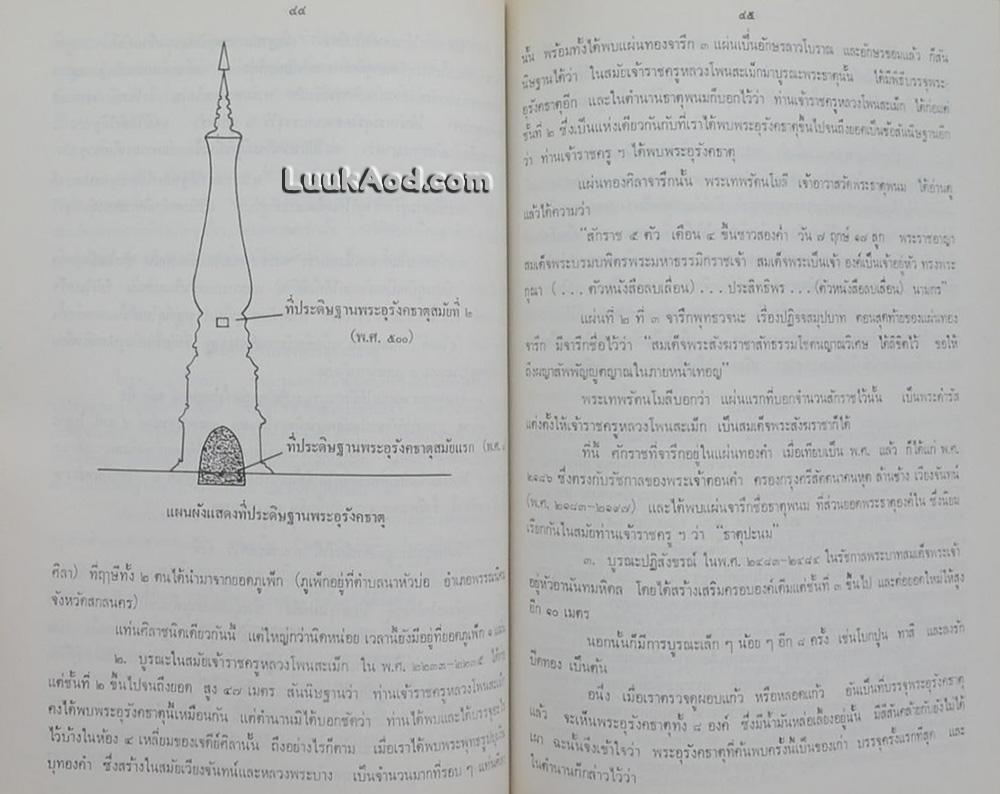 ๔๔
LuukAod.com
ที่ประดิษฐานพระอุรังคธาตุสมัยที่ ๒
(พ.ศ. ๕๐๐)
ที่ประดิษฐานพระอุรังคธาตุสมัยแรก (พ.ศ.
แผนผังแสดงที่ประดิษฐานพระอุรังคธาตุ
ศิลา) ที่ฤาษีทั้ง ๒ ตนได้นำมาจากยอดภูเพ็ก (ภูเพ็กอยู่ที่ตำบลนาหัวบ่อ อำเภอพรรณนิคม
จังหวัดสกลนคร)
แท่นศิลาชนิดเดียวกันนี้ แต่ใหญ่กว่านิดหน่อย เวลานี้ยังมีอยู่ที่ยอดภูเพ็ก ๑
๒. บูรณะในสมัยเจ้าราชครูหลวงโพนสะเม็ก ใน พ.ศ. ๒๒๓๓-๒๒๓๕
แต่ชั้นที่ ๒ ขึ้นไปจนถึงยอด สูง ๔๗ เมตร สันนิษฐานว่า ท่านเจ้าราชครูหลวงโพนสะเม็ก
คงได้พบพระอุรังคธาตุนี้เหมือนกัน แต่ตำนานมิได้บอกชัดว่า ท่านได้พบและได้บรรจุอะไร
ไว้บ้างในห้อง ๔ เหลี่ยมของเจดีย์ศิลานั้น ถึงอย่างไรก็ตาม เมื่อเราได้พบพระพุทธรูป
บุทองคำ ซึ่งสร้างในสมัยเวียงจันทน์และหลวงพระบาง เป็นจำนวนมากที่รอบ ๆ
๔๕
นั้น พร้อมทั้งได้พบแผ่นทองจารึก ๓ แผ่นเป็นอักษรลาวโบราณ และอักษรขอมแล้ว ก็สัน
นิษฐานได้ว่า ในสมัยเจ้าราชครูหลวงโพนสะเม็กมาบูรณะพระธาตุนั้น ได้มีพิธีบรรจุพระ
อุรังคธาตุอีก และในตำนานธาตุพนมก็บอกไว้ว่า ท่านเจ้าราชครูหลวงโพนสะเม็ก ได้ก่อแต่
ชั้นที่ ๒ ซึ่งเป็นแห่งเดียวกันกับที่เราได้พบพระอุรังคธาตุขึ้นไปจนถึงยอดเป็นข้อสันนิษฐานอีก
ว่า ท่านเจ้าราชครู ฯ ได้พบพระอุรังคธาตุ
แผ่นทองศิลาจารึกนั้น พระเทพรัตนโมลี เจ้าอาวาสวัดพระธาตุพนม ได้อ่านดู
แล้วได้ความว่า
"สักราช ๕ ตัว เดือน ๔ ขึ้นซาวสองค่ำ วัน ๗ ฤกษ์ ๑๗ ลูก พระราชอาญา
สมเด็จพระบรมบพิตรพระมหาธรรมิกราชเจ้า สมเด็จพระเป็นเจ้า องค์เป็นเจ้าอยู่หัว ทรงพระ
กุณา (... ตัวหนังสือลบเลือน) ... ประสิทธิพร ...(ตัวหนังสือลบเลือน) นามกร"
แผ่นที่ ๒ ที่ ๓ จารึกพุทธวจนะ เรื่องปฏิจจสมุปบาท ตอนสุดท้ายของแผ่นทอง
จารึก มีจารึกชื่อไว้ว่า "สมเด็จพระสังฆราชาสัทธรรมโชตนญาณวิเศษ ได้ลิขิตไว้ ขอให้
ถึงผญาสัพพัญญุตญาณในภายหน้าเทอญ"
พระเทพรัตนโมลีบอกว่า แผ่นแรกที่บอกจำนวนสักราชไว้นั้น เป็นพระดำรัส
แต่งตั้งให้เจ้าราชครูหลวงโพนสะเม็ก เป็นสมเด็จพระสังฆราชาก็ได้
ที่นี้ ศักราชที่จารึกอยู่ในแผ่นทองคำ เมื่อเทียบเป็น พ.ศ. แล้ว ก็ได้แก่ พ.ศ.
๒๑๘๖ ซึ่งตรงกับรัชกาลของพระเจ้าตอนคำ ครองกรุงศรีสัตตนาคนหุต ล้านช้าง เวียงจันทน์
(พ.ศ. ๒๑๘๓-๒๑๙๗) และได้พบแผ่นจารึกชื่อธาตุพนม ที่ส่วนยอดพระธาตุองค์ใน ซึ่งนิยม
เรียกกันในสมัยท่านเจ้าราชครู ฯ ว่า "ธาตุปะนม"
๓. บูรณะปฏิสังขรณ์ ในพ.ศ. ๒๔๘๓-๒๔๘๔ ในรัชกาลพระบาทสมเด็จพระเจ้า
อยู่หัวอานันทมหิดล โดยได้สร้างเสริมครอบองค์เดิมแต่ชั้นที่ ๓ ขึ้นไป และต่อยอดใหม่ให้สูง
อีก ๑๐ เมตร
นอกนั้นก็มีการบูรณะเล็ก ๆ น้อย ๆ อีก ๘ ครั้ง เช่นโบกปูน ทาสี และลงรัก
ปิดทอง เป็นต้น
อนึ่ง เมื่อเราตรวจดูผอบแก้ว หรือหลอดแก้ว อันเป็นที่บรรจุพระอุรังคธาตุ
แล้ว จะเห็นพระอุรังคธาตุทั้ง ๘ องค์ ซึ่งมีน้ำมันหล่อเลี้ยงอยู่นั้น มีสีสันคล้ายกับยังไม่ได้
เผา ฉะนั้นจึงเข้าใจว่า พระอุรังคธาตุที่ค้นพบครั้งนี้เป็นของเก่า บรรจุครั้งแรกที่สุด และ
ในตำนานก็กล่าวไว้ว่า